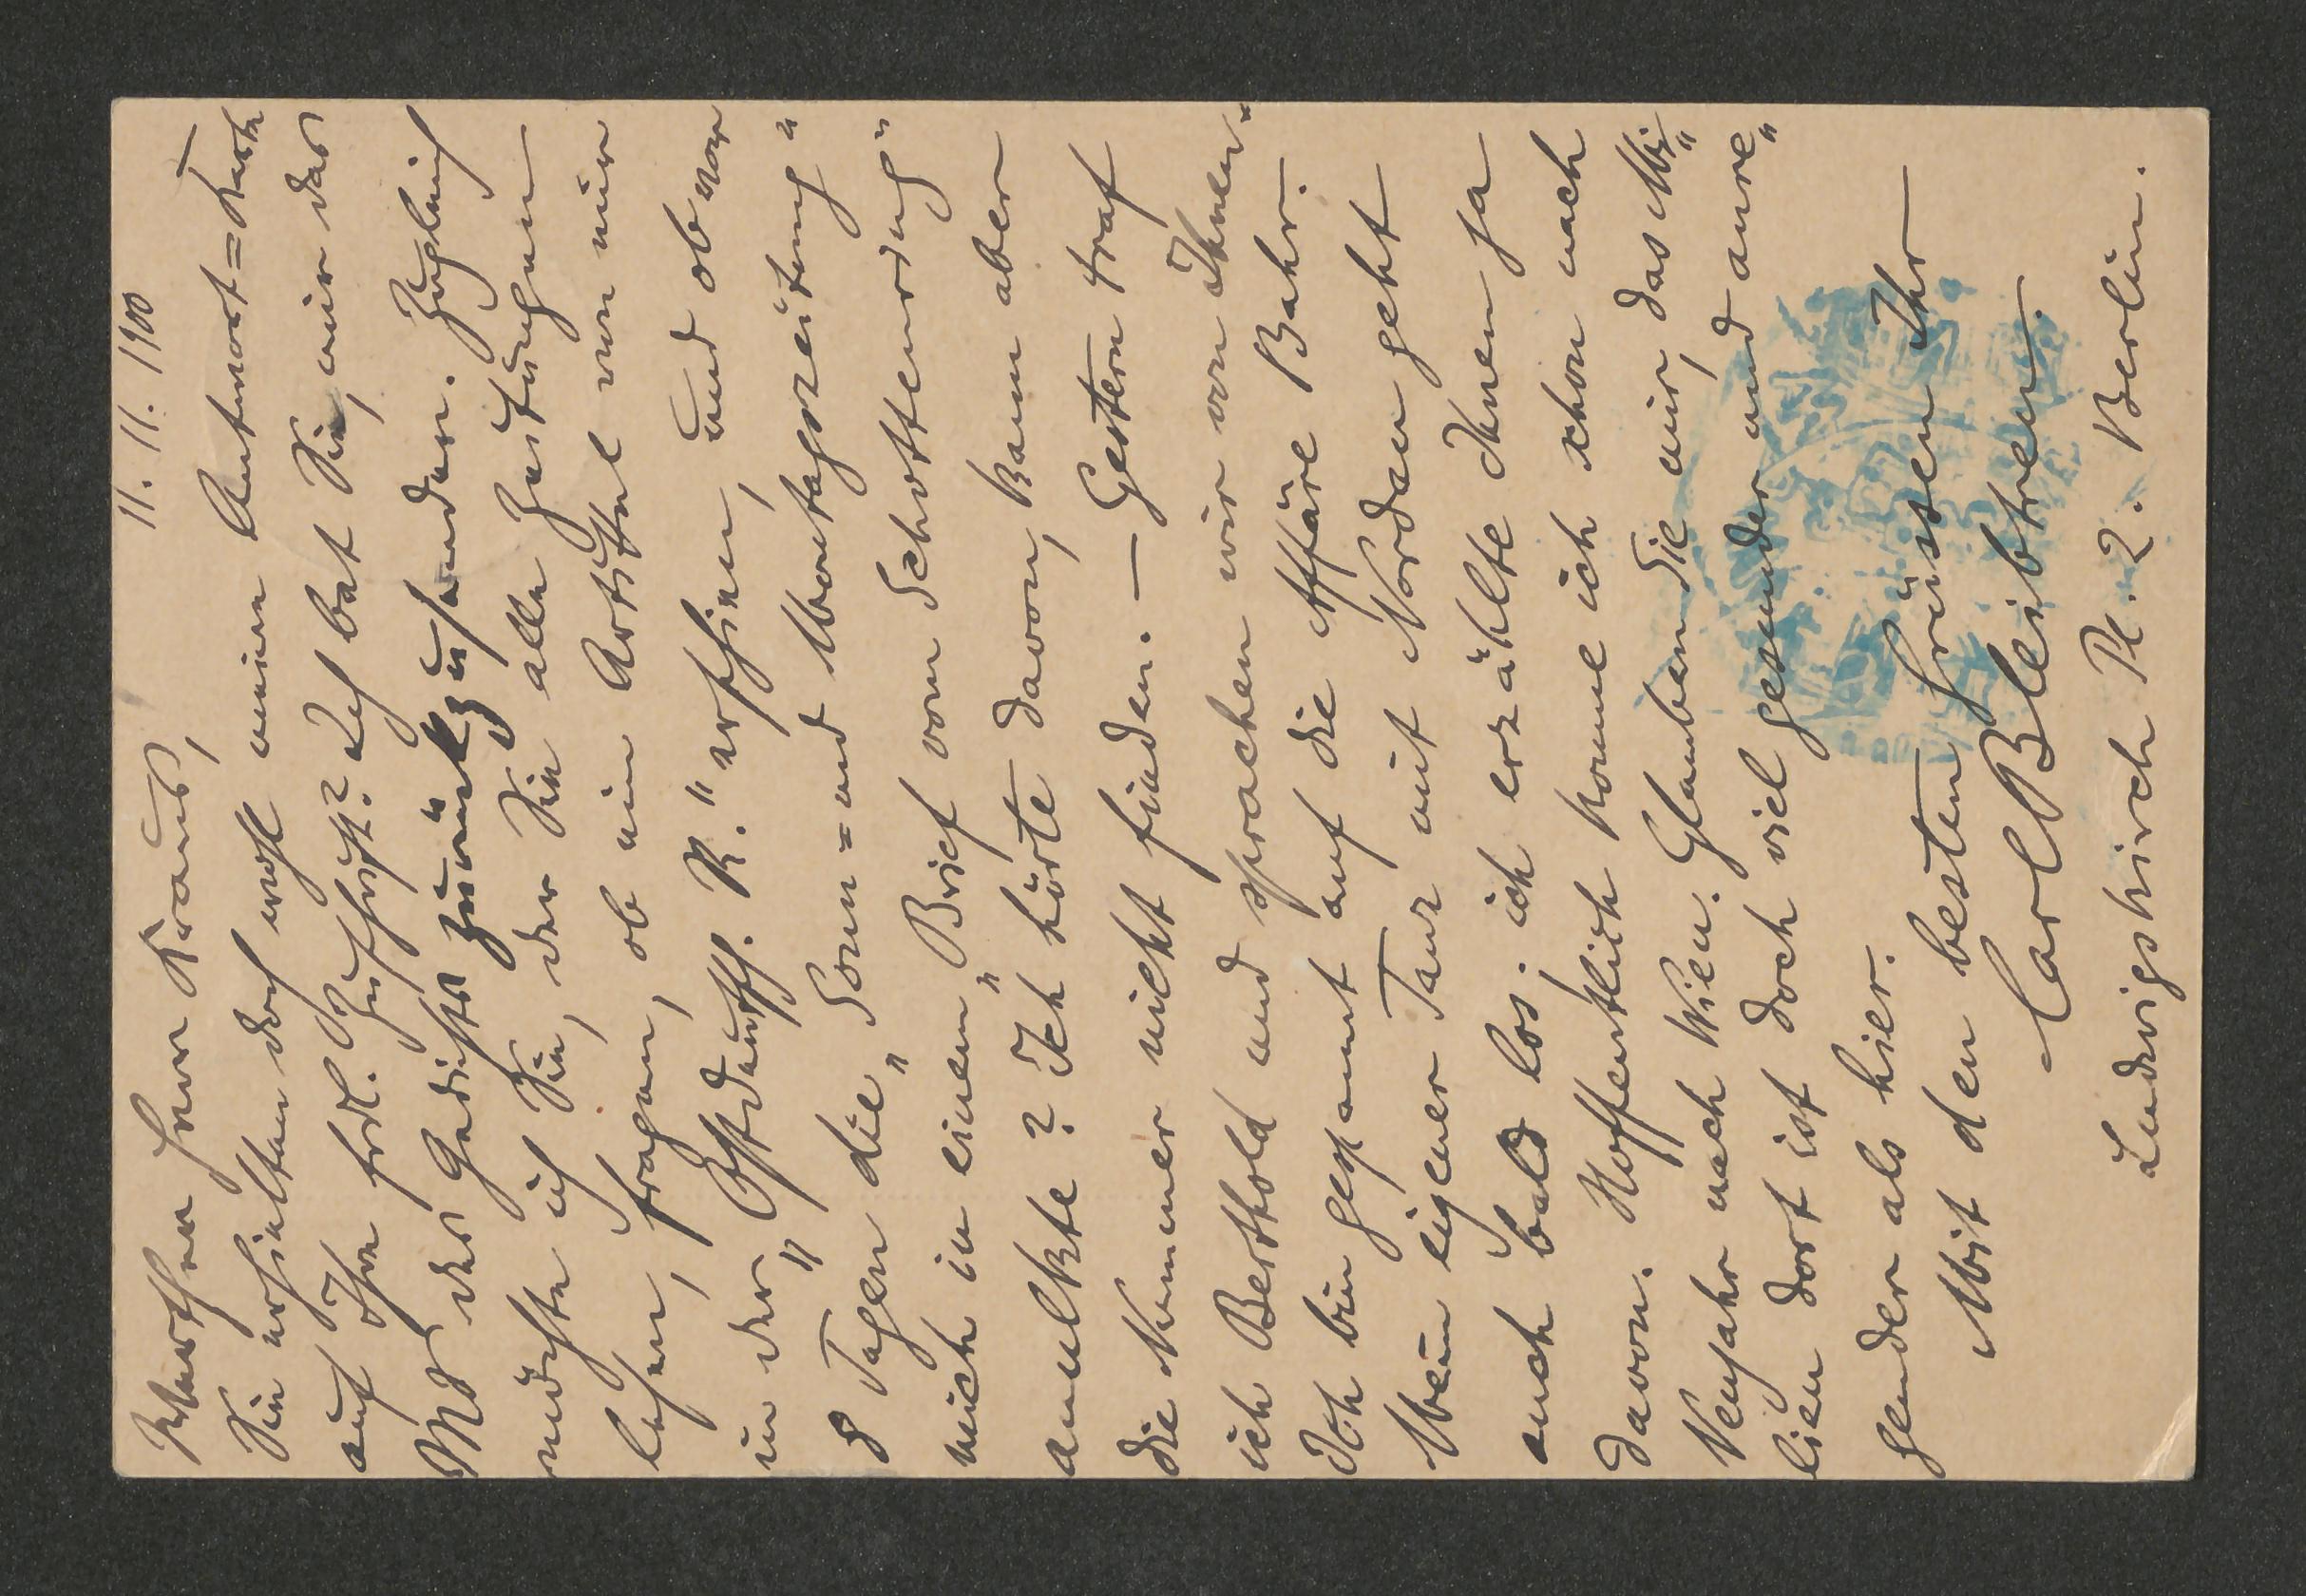 11. 11. 1900
Werther Herr Kraus,
Sie erhielten doch wohl meine Antwort=Karte
auf Ihre frdl. Zuschrift? Ich bat Sie, mir das
MS des Gedichtes zurückzusenden. Zugleich
möchte ich Sie, der Sie alle Zeitungen
lesen, fragen, ob ein Artikel von mir
in der „Ostdeutsch. R." erschien, und ob vor
8 Tagen die „Sonn= und Montagszeitung"
mich in einem „Brief vom Schottenring"
anulkte? Ich hörte davon, kann aber
die Nummer nicht finden. — Gestern traf
ich Berthold und sprachen wir von Ihnen.
Ich bin gespannt auf die Affäre Bahr.
Mein eigener Tanz mit Norden geht
auch bald los; ich erzählte Ihnen ja
davon. Hoffentlich komme ich schon nach
Neujahr nach Wien. Glauben Sie mir, das Mi„
lieu dort ist doch viel gesunder und anre„
gender als hier.
Mit den besten Grüssen Ihr
Carl Bleibtreu.
Ludwigskirch Pl. 2. Berlin.